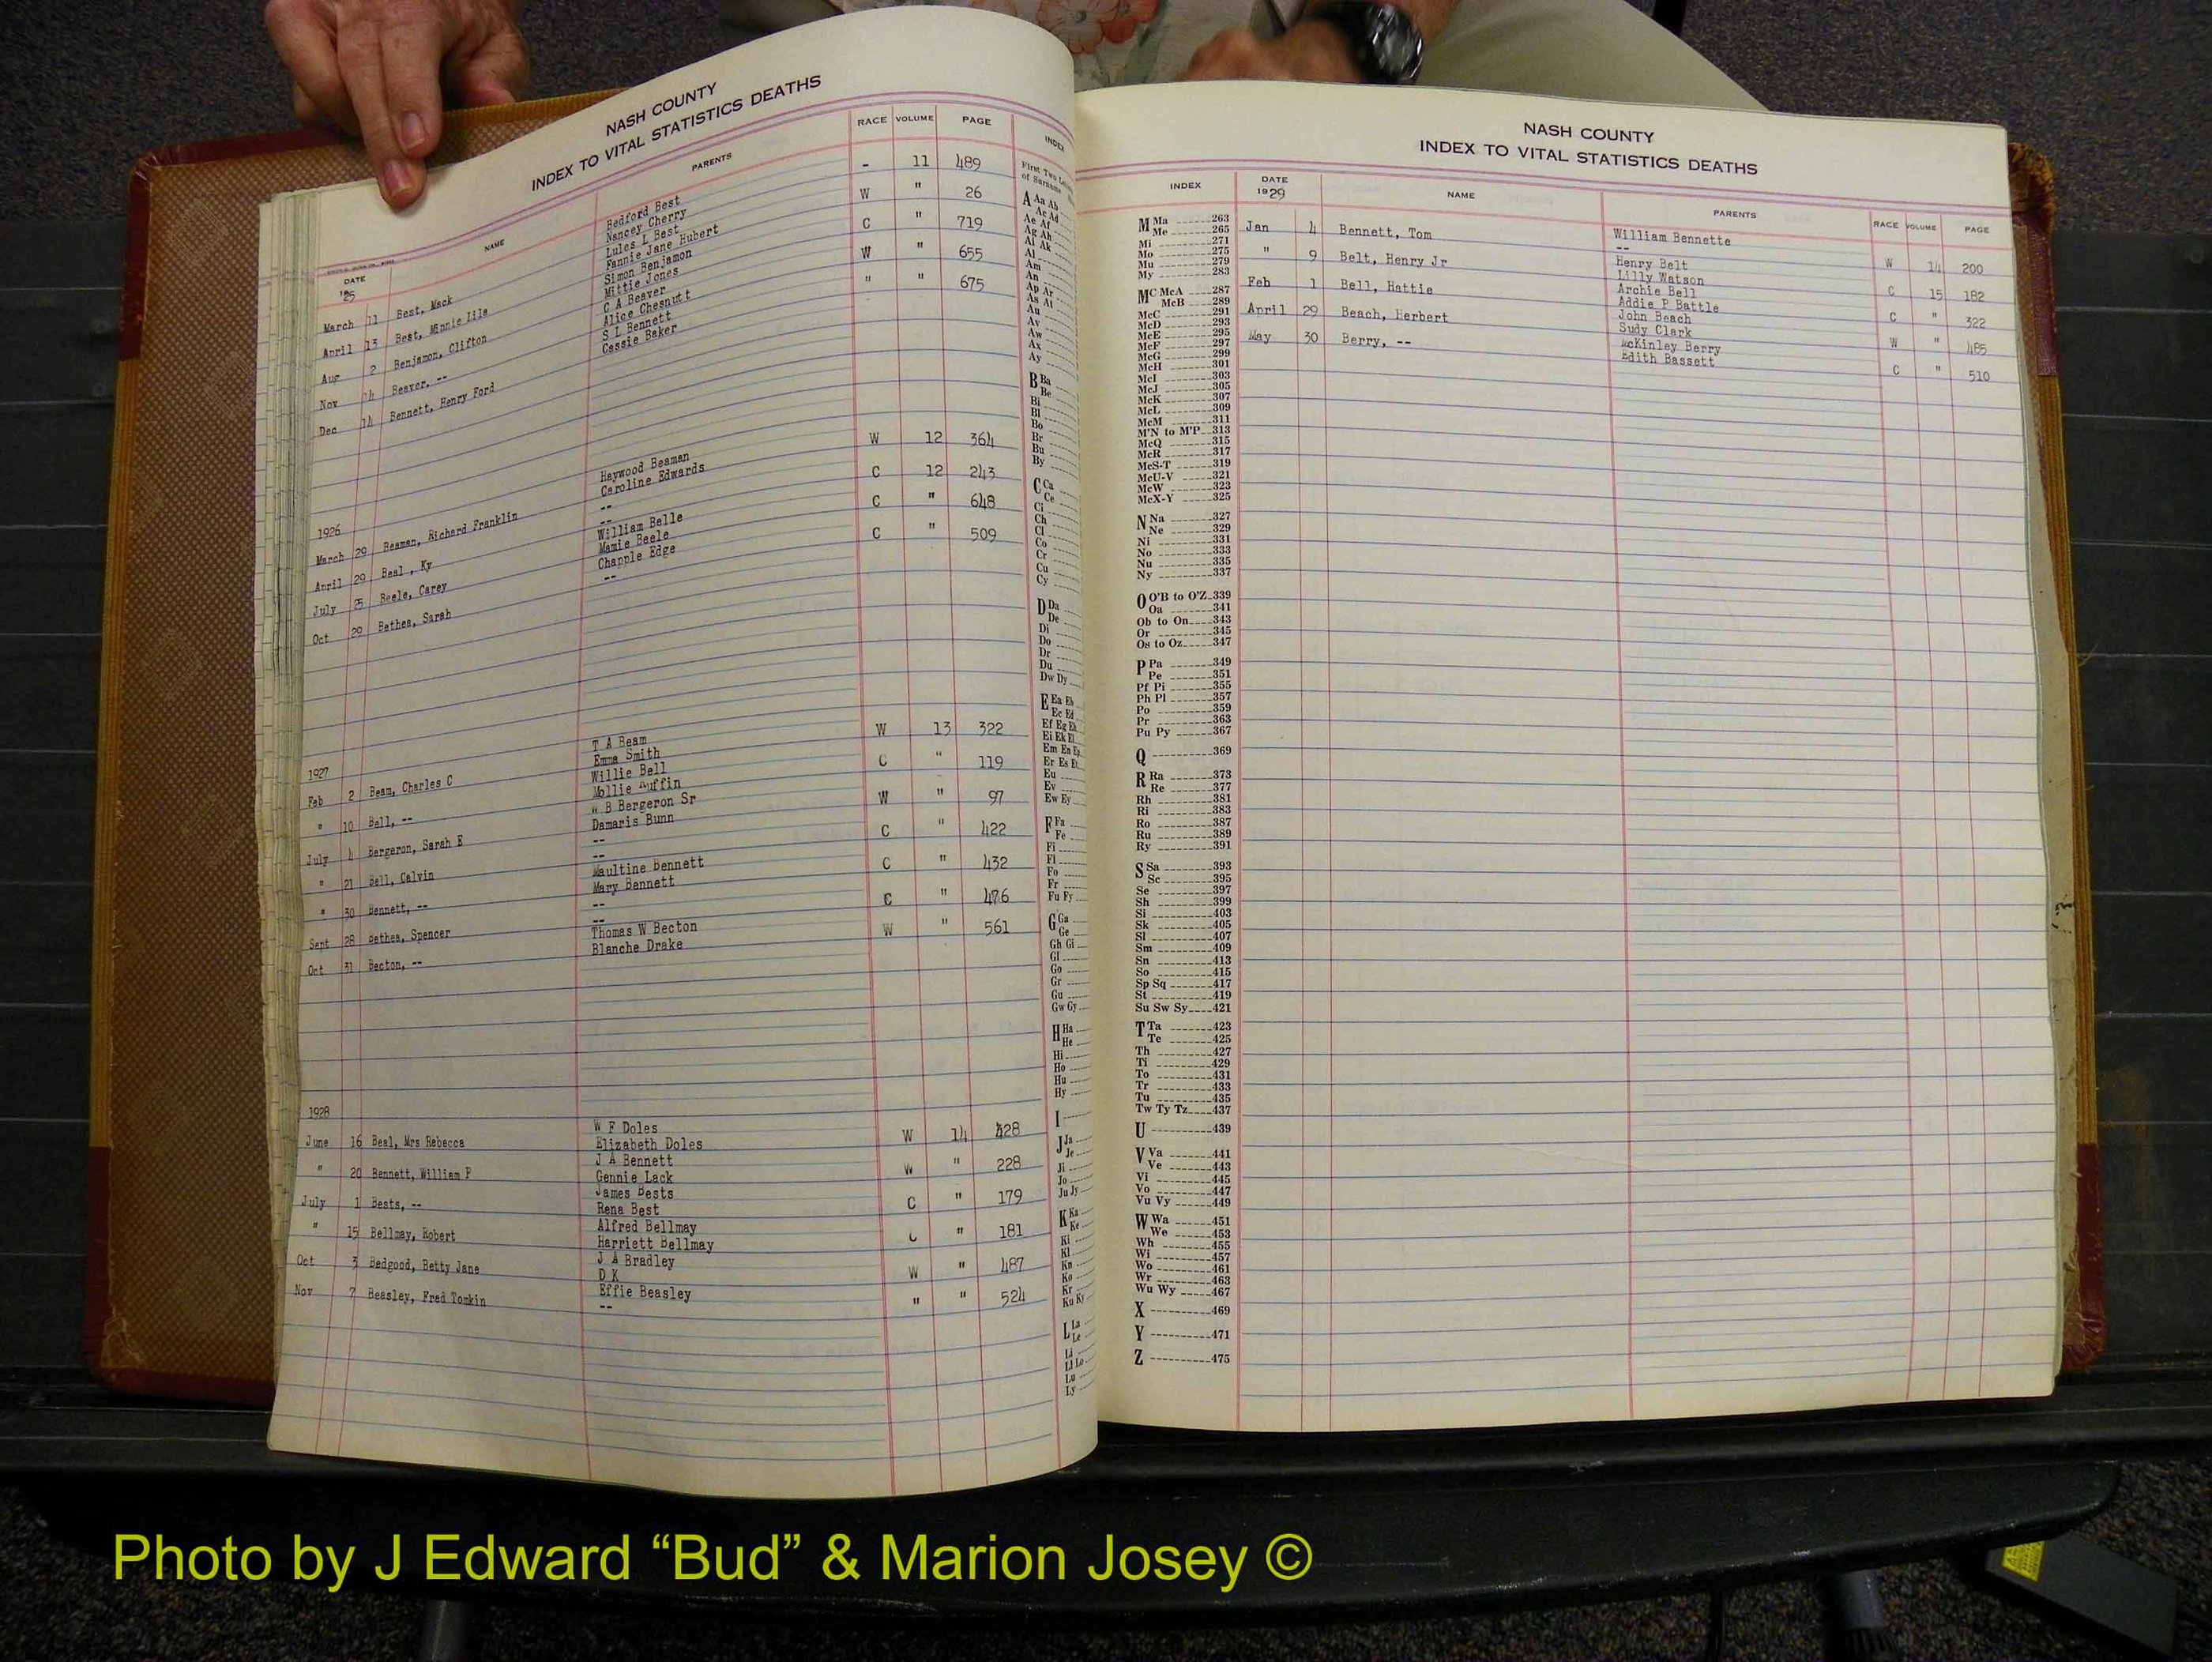 NASH COUNTY
INDEX TO VITAL STATISTICS DEATHS
DATE NAME PARENTS RACE VOLUME PAGE
1925
March 11 Best, Mack Bedford Best - 11 489
Nancey Cherry
April 13 Best, Minnie Lila Lules L Best W " 26
Fannie Jane Hubert
Aug 2 Benjamon, Clifton Simon Benjamon C " 719
Mittie Jones
Nov 14 Beaver, -- C A Beaver W " 655
Alice Chesnutt
Dec 14 Bennett, Henry Ford S L Bennett " " 675
Cassie Baker
1926
March 29 Beaman, Richard Franklin Haywood Beaman W 12 364
Caroline Edwards
April 29 Beal , Ky -- C 12 243
--
July 25 Beele, Carey William Belle C " 648
Mamie Beele
Oct 29 Bethea, Sarah Chapple Edge C " 509
--
1927
Feb 2 Beam, Charles C T A Beam W 13 322
Emma Smith
" 10 Bell, -- Willie Bell C " 119
Mollie Ruffin
July 4 Bergeron, Sarah E W B Bergeron Sr W " 97
Damaris Bunn
" 21 Bell, Calvin -- C " 422
--
" 30 Bennett, -- Maultine Bennett C " 432
Mary Bennett
Sept 28 Bethea, Spencer -- C " 476
--
Oct 31 Becton, -- Thomas W Becton W " 561
Blanche Drake
1928
June 16 Beal, Mrs Rebecca W F Doles W 14 428
Elizabeth Doles
" 20 Bennett, William P J A Bennett W " 228
Gennie Lack
July 1 Bests, -- James Bests C " 179
Rena Best
" 15 Bellmay, Robert Alfred Bellmay C " 181
Harriett Bellmay
Oct 3 Bedgood, Betty Jane J A Bradley W " 487
D K
Nov 7 Beasley, Fred Tomkin Effie Beasley " " 524
--
INDEX
First Two
of Surname
A Aa Ab
Ac Ad
Ae Af
Ag Ah
Ai Ak
Al
Am
An
Ap Ar
As At
Au
Av
Aw
Ax
Ay
B Ba
Be
Bi
Bl
Bo
Br
Bu
By
C Ca
Ce
Ci
Ch
Cl
Co
Cr
Cu
Cy
D Da
De
Di
Do
Dr
Du
Dw Dy
E Ea Eb
Ec Ed
Ef Eg Eh
Ei Ek El
Em En Ep
Er Es Et
Eu
Ev
Ew Ey
F Fa
Fe
Fi
Fl
Fo
Fr
Fu Fy
G Ga
Ge
Gh Gi
Gl
Go
Gr
Gu
Gw Gy
H Ha
He
Hi
Ho
Hu
Hy
I
J Ja
Je
Ji
Jo
Ju Jy
K Ka
Ke
Ki
Kl
Kn
Ko
Kr
Ku Ky
L La
Le
Li
Ll Lo
Lu
Ly
NASH COUNTY
INDEX TO VITAL STATISTICS DEATHS
INDEX DATE NAME PARENTS RACE VOLUME PAGE
1929
Jan 4 Bennett, Tom William Bennette W 14 200
--
" 9 Belt, Henry Jr Henry Belt C 15 182
Lilly Watson
Feb 1 Bell, Hattie Archie Bell C " 322
Addie P Battle
April 29 Beach, Herbert John Beach W " 485
Sudy Clark
May 30 Berry, -- McKinley Berry C " 510
Edith Bassett
M Ma 263
Me 265
Mi 271
Mo 275
Mu 279
My 283
MC McA 287
McB 289
McC 291
McD 293
McE 295
McF 297
McG 299
McH 301
McI 303
McJ 305
McK 307
McL 309
McM 311
M'N to M'P 313
McQ 315
McR 317
McS-T 319
McU-V 321
McW 323
McX-Y 325
N Na 327
Ne 329
Ni 331
No 333
Nu 335
Ny 337
O O'B to O'Z 339
Oa 341
Ob to On 343
Or 345
Os to Oz 347
P Pa 349
Pe 351
Pf Pi 355
Ph Pl 357
Po 359
Pr 363
Pu Py 367
Q 369
R Ra 373
Re 377
Rh 381
Ri 383
Ro 387
Ru 389
Ry 391
S Sa 393
Sc 395
Se 397
Sh 399
Si 403
Sk 405
Sl 407
Sm 409
Sn 413
So 415
Sp Sq 417
St 419
Su Sw Sy 421
T Ta 423
Te 425
Th 427
Ti 429
To 431
Tr 433
Tu 435
Tw Ty Tz 437
U 439
V Va 441
Ve 443
Vi 445
Vo 447
Vu Vy 449
W Wa 451
We 453
Wh 455
Wi 457
Wo 461
Wr 463
Wu Wy 467
X 469
Y 471
Z 475
Photo by J Edward “Bud” & Marion Josey ©